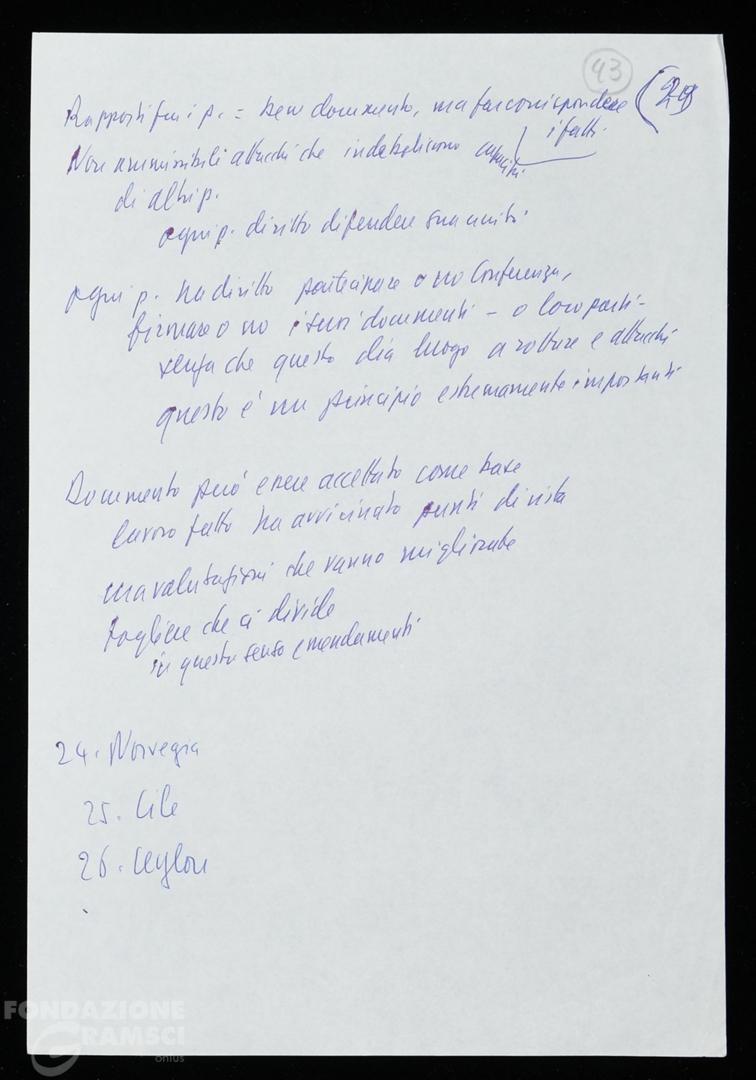 43
(29
Rapporti fra i p. = ben documento, ma far corrispondere
i fatti.
Non ammissibili attacchi che indeboliscono capacità
di altri p.
ogni p. diritto difendere sua unità
ogni p. ha diritto partecipare o no Conferenza,
firmare o no i suoi documenti – o loro parti –
senza che questo dia luogo a rotture e attacchi
questo è un principio estremamente importante
Documento può essere accettato come base
lavoro fatto ha avvicinato punti di vista
ma valutazioni che vanno migliorate
togliere che ci divide
in questo senso emendamenti
24. Norvegia
25. Cile
26. Ceylon
FONDAZIONE
GRAMSCI
onlus